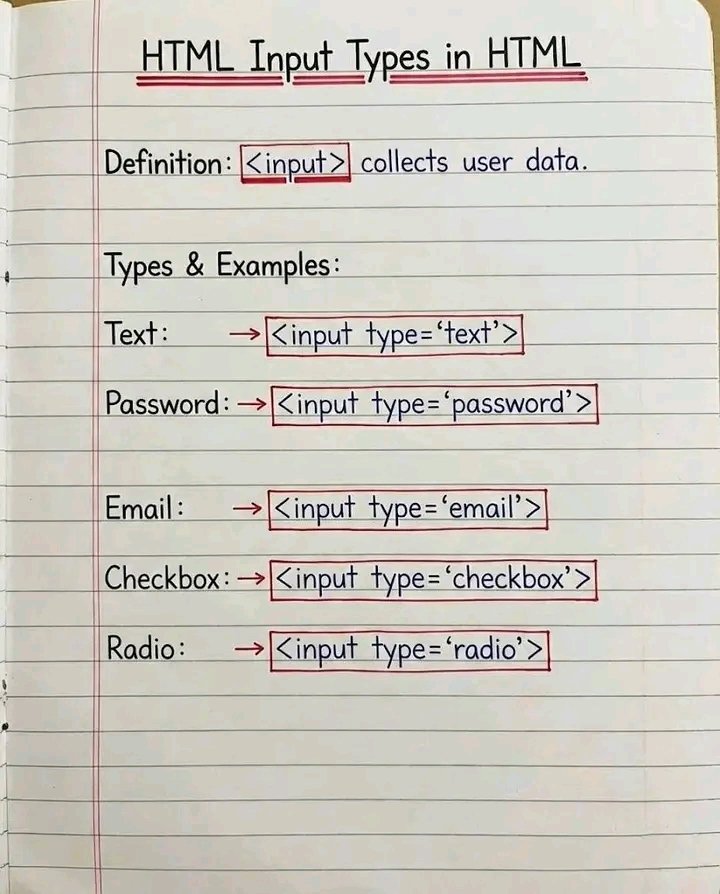 HTML Input Types in HTML
Definition: <input> collects user data.
Types & Examples:
Text: → <input type=‘text’>
Password: → <input type=‘password’>
Email: → <input type=‘email’>
Checkbox: → <input type=‘checkbox’>
Radio: → <input type=‘radio’>